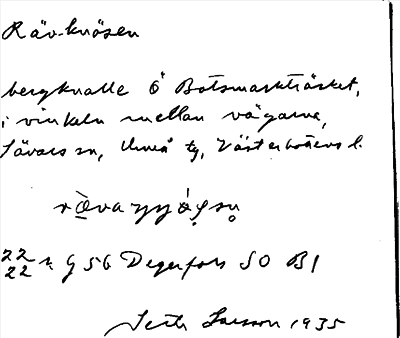 Räv-knösen
bergknalle Ö Botsmarkträsket,
i vinkeln mellan vägarna,
Sävars sn, Umeå tg, Västerbottens l.
22 22 n g 56 Degerfors SO B1
Seth Larsson 1935